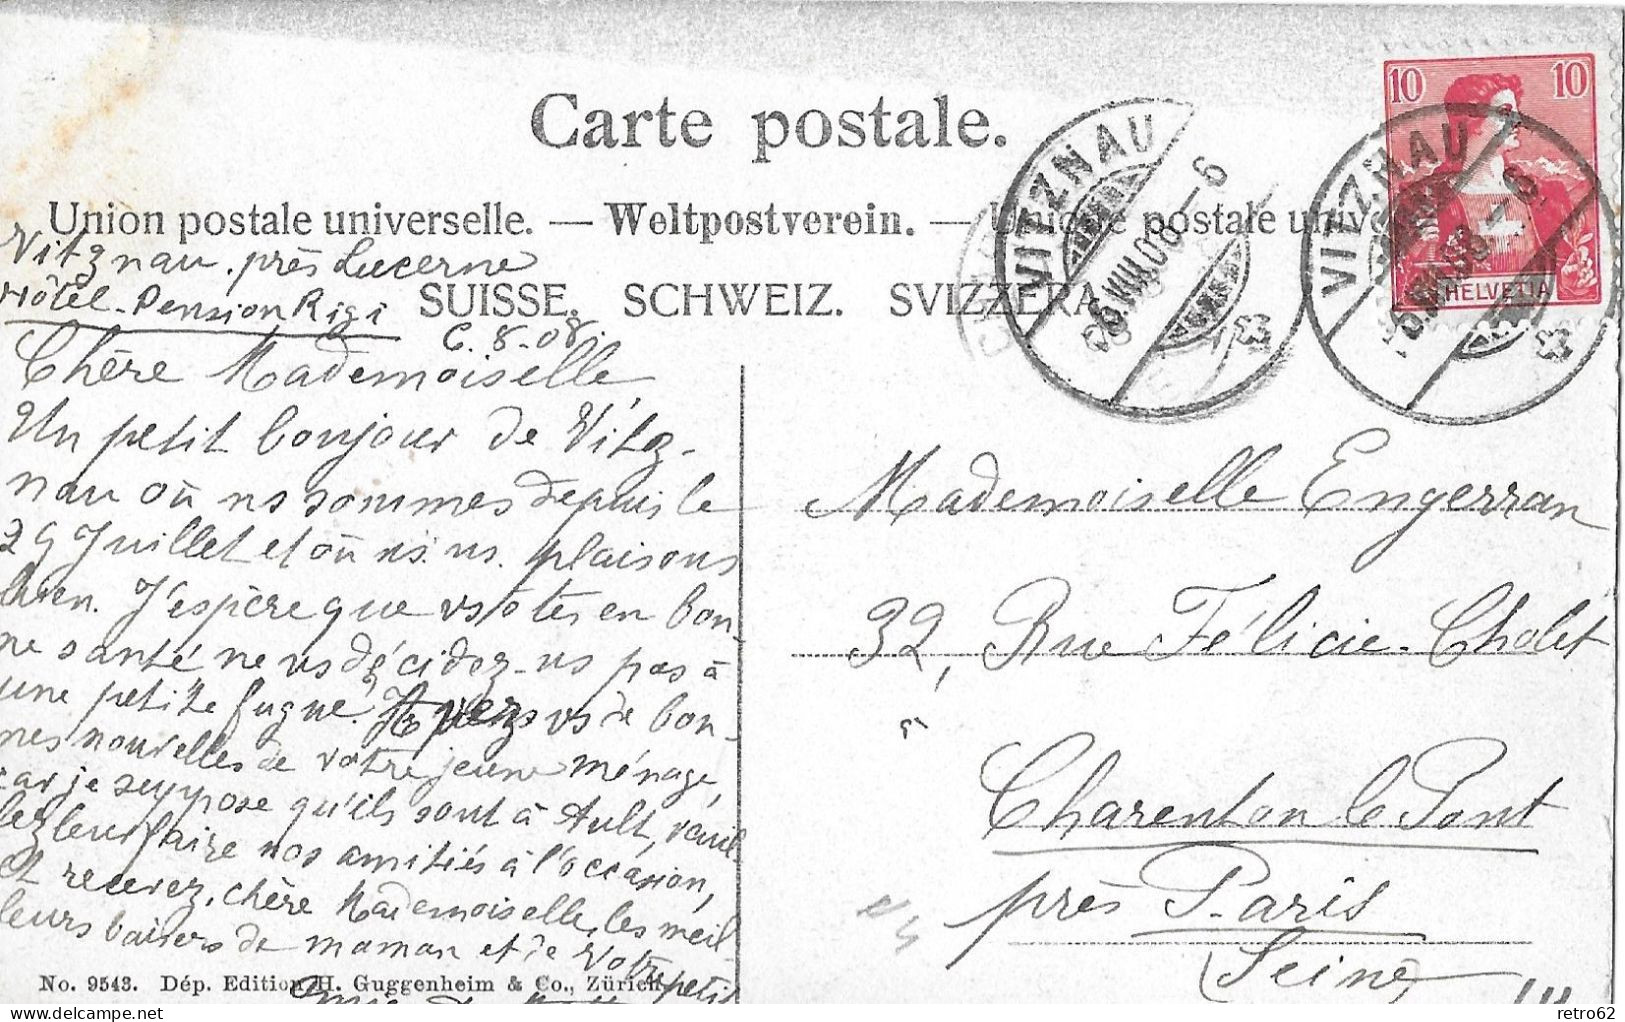 Carte postale.
Union postale universelle. — Weltpostverein. — Unione postale univ
SUISSE. SCHWEIZ. SVIZZERA
10 10
HELVETIA
VITZNAU
6.VIII.08 – 6
VITZNAU
6.VIII.08
Vitznau. près Lucerne
Hôtel-Pension Rigi
6.8-08.
Chère Mademoiselle,
Un petit bonjour de Vitz-
nau où ns sommes depuis le
29 Juillet et où ns. ns. plaisons
bien. J'espère que vs êtes en bon-
ne santé ne vs décidez-vs pas à
une petite fugue? vs de bon-
nes nouvelles de votre jeune ménage,
car je suppose qu'ils sont à Ault, veuil
lez leur faire nos amitiés à l'occasion,
et recevez, chère Mademoiselle, les meil
leurs baisers de maman et de votre petit
Mademoiselle Engerran
32, Rue Félicie-Cholet
Charenton le Pont
près Paris
(Seine)
No. 9543. Dép. Edition H. Guggenheim & Co., Zürich
retro62